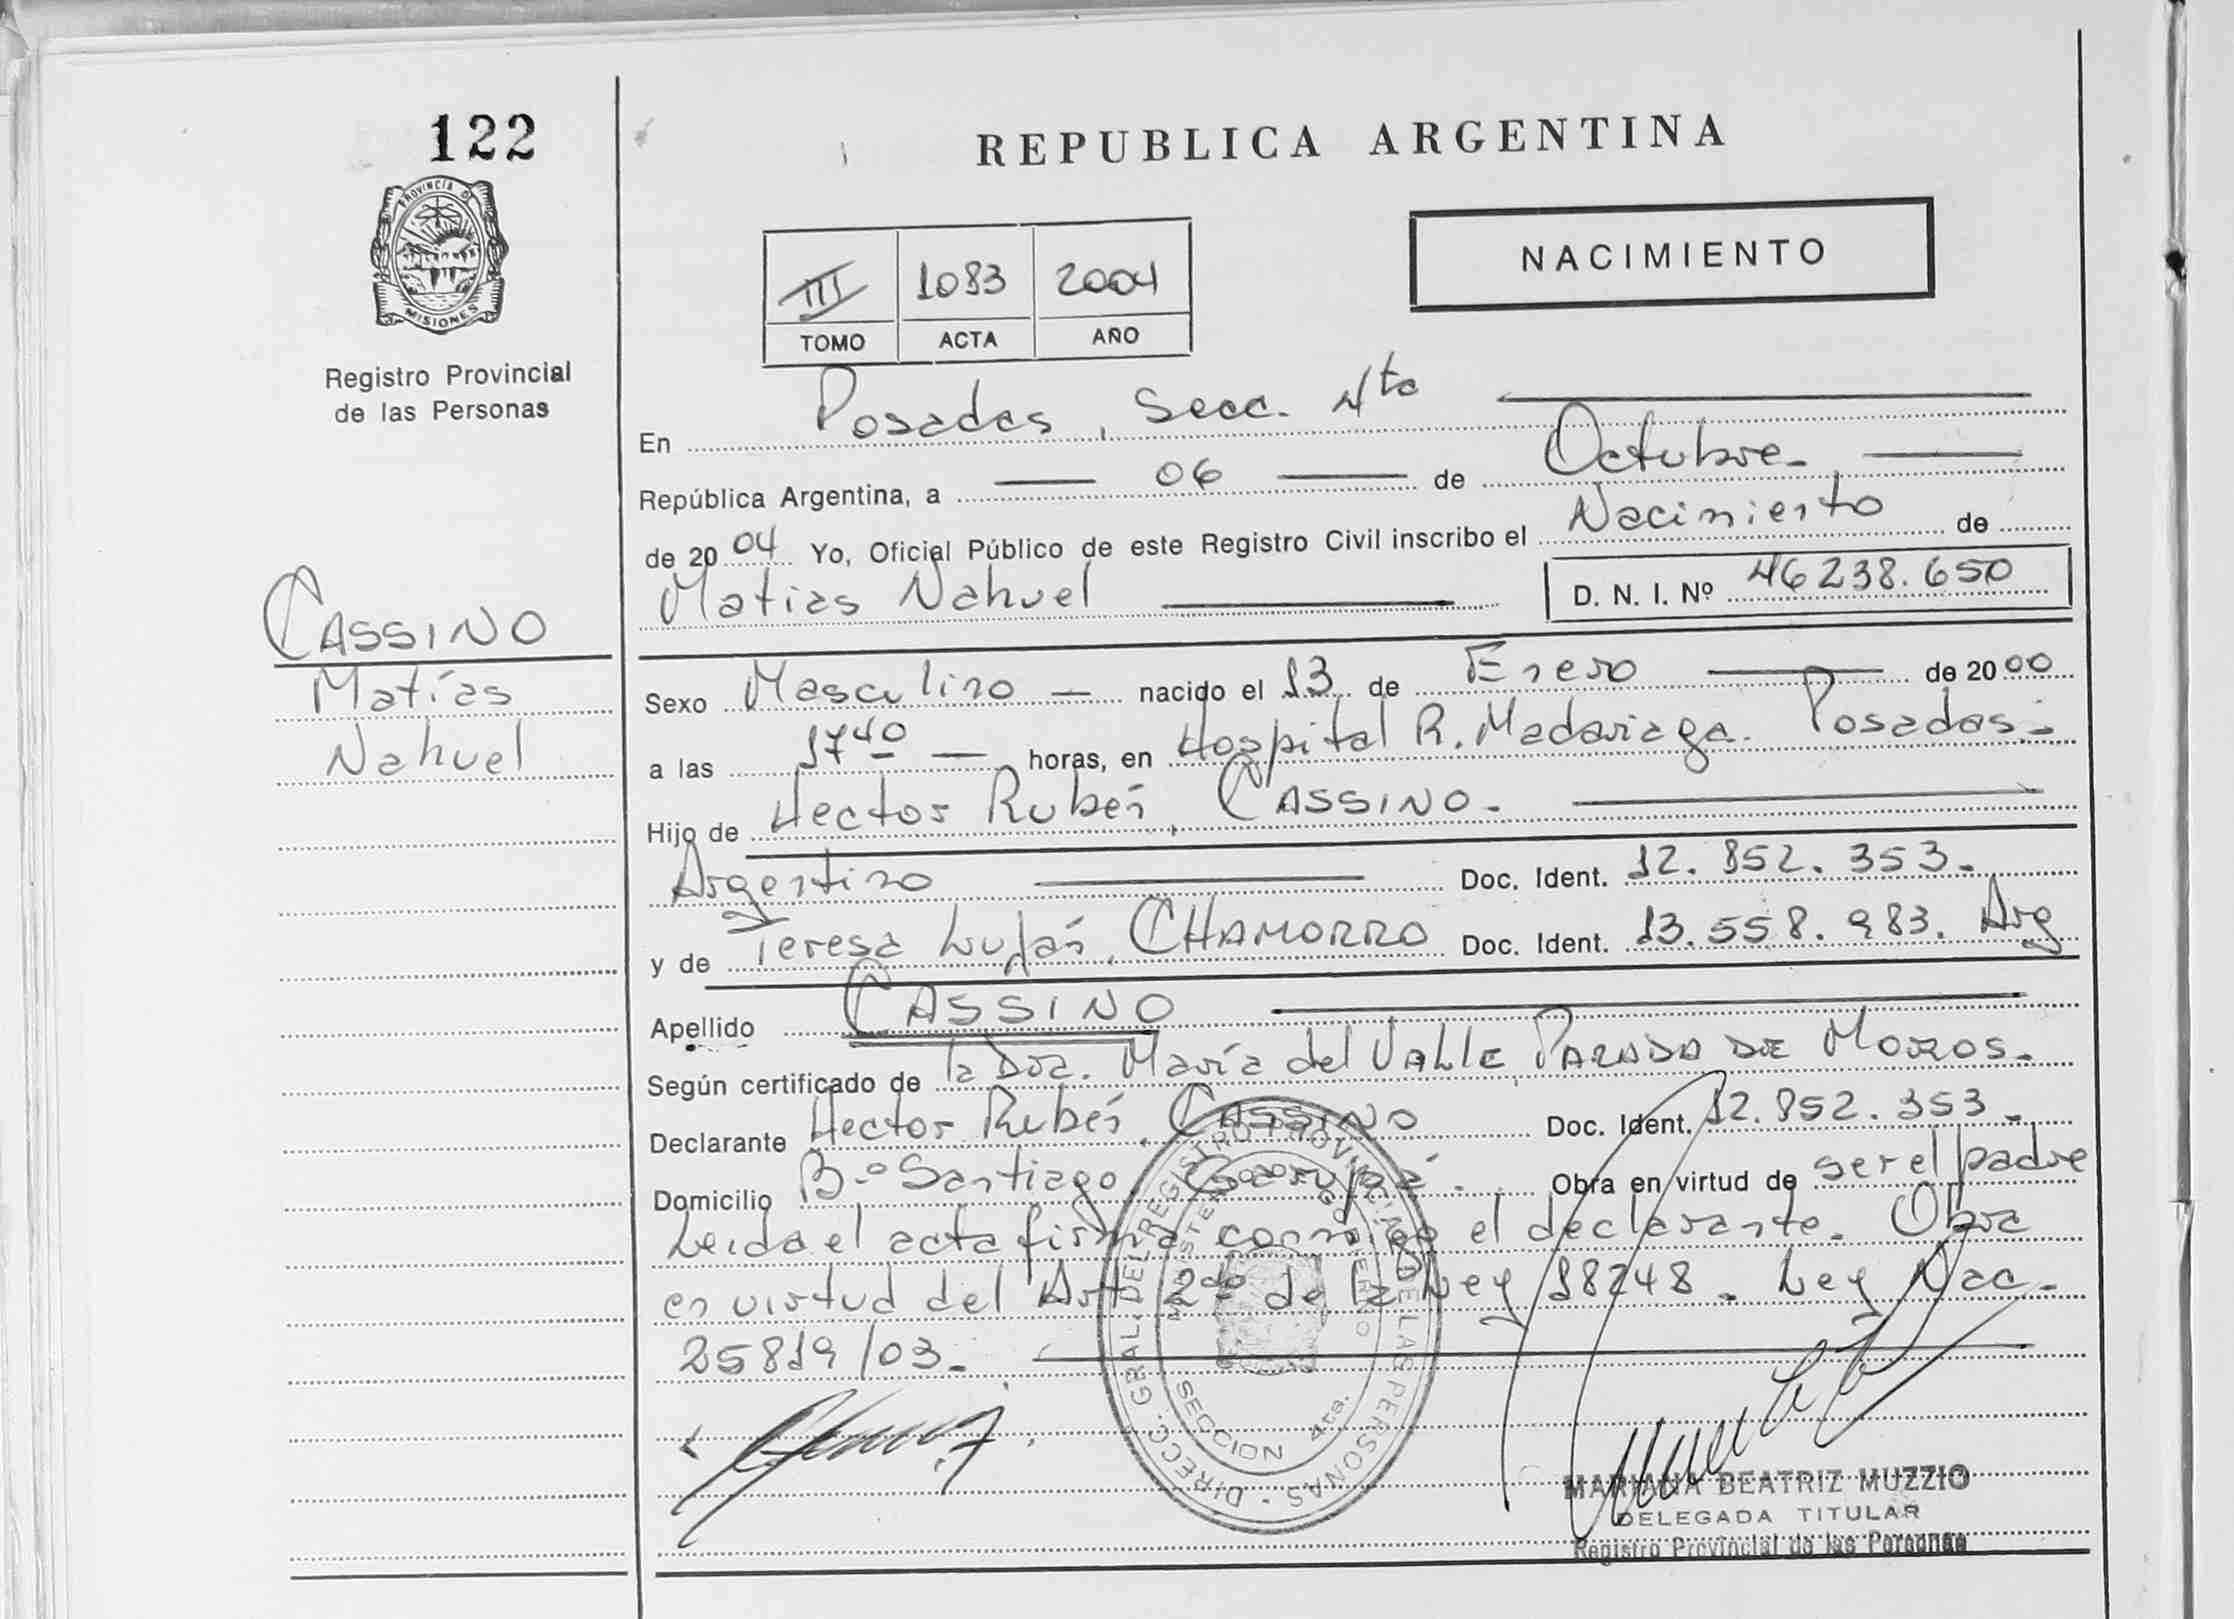 122
PROVINCIA DE
MISIONES
Registro Provincial
de las Personas
CASSINO
Matías
Nahuel
REPUBLICA ARGENTINA
III 1083 2004
TOMO ACTA AÑO
NACIMIENTO
En Posadas, Secc. 4ta
República Argentina, a 06 de Octubre
de 2004 Yo, Oficial Público de este Registro Civil inscribo el Nacimiento de
Matias Nahuel D. N. I. Nº 46238.650
Sexo Masculino nacido el 13 de Enero de 2000
a las 17 40 horas, en Hospital R. Madariaga. Posadas.
Hijo de Hector Rubén CASSINO.
Argentino Doc. Ident. 12.852.353.
y de Teresa Luján CHAMORRO Doc. Ident. 13.558.983. Arg
Apellido CASSINO
Según certificado de la Dra. María del VALLE PARADA DE MOROS.
Declarante Hector Rubén CASSINO Doc. Ident. 12.852.353.
Domicilio B.º Santiago, Garupá. Obra en virtud de ser el padre
Leida el acta firma conmigo el declarante. Obra
en virtud del Art 2do de la Ley 18248. Ley Nac.
25819/03.
DIRECC. GRAL. DEL REGISTRO PROVINCIAL DE LAS PERSONAS
MINISTERIO DE GOBIERNO
SECCION 4ta.
MARIANA BEATRIZ MUZZIO
DELEGADA TITULAR
Registro Provincial de las Personas